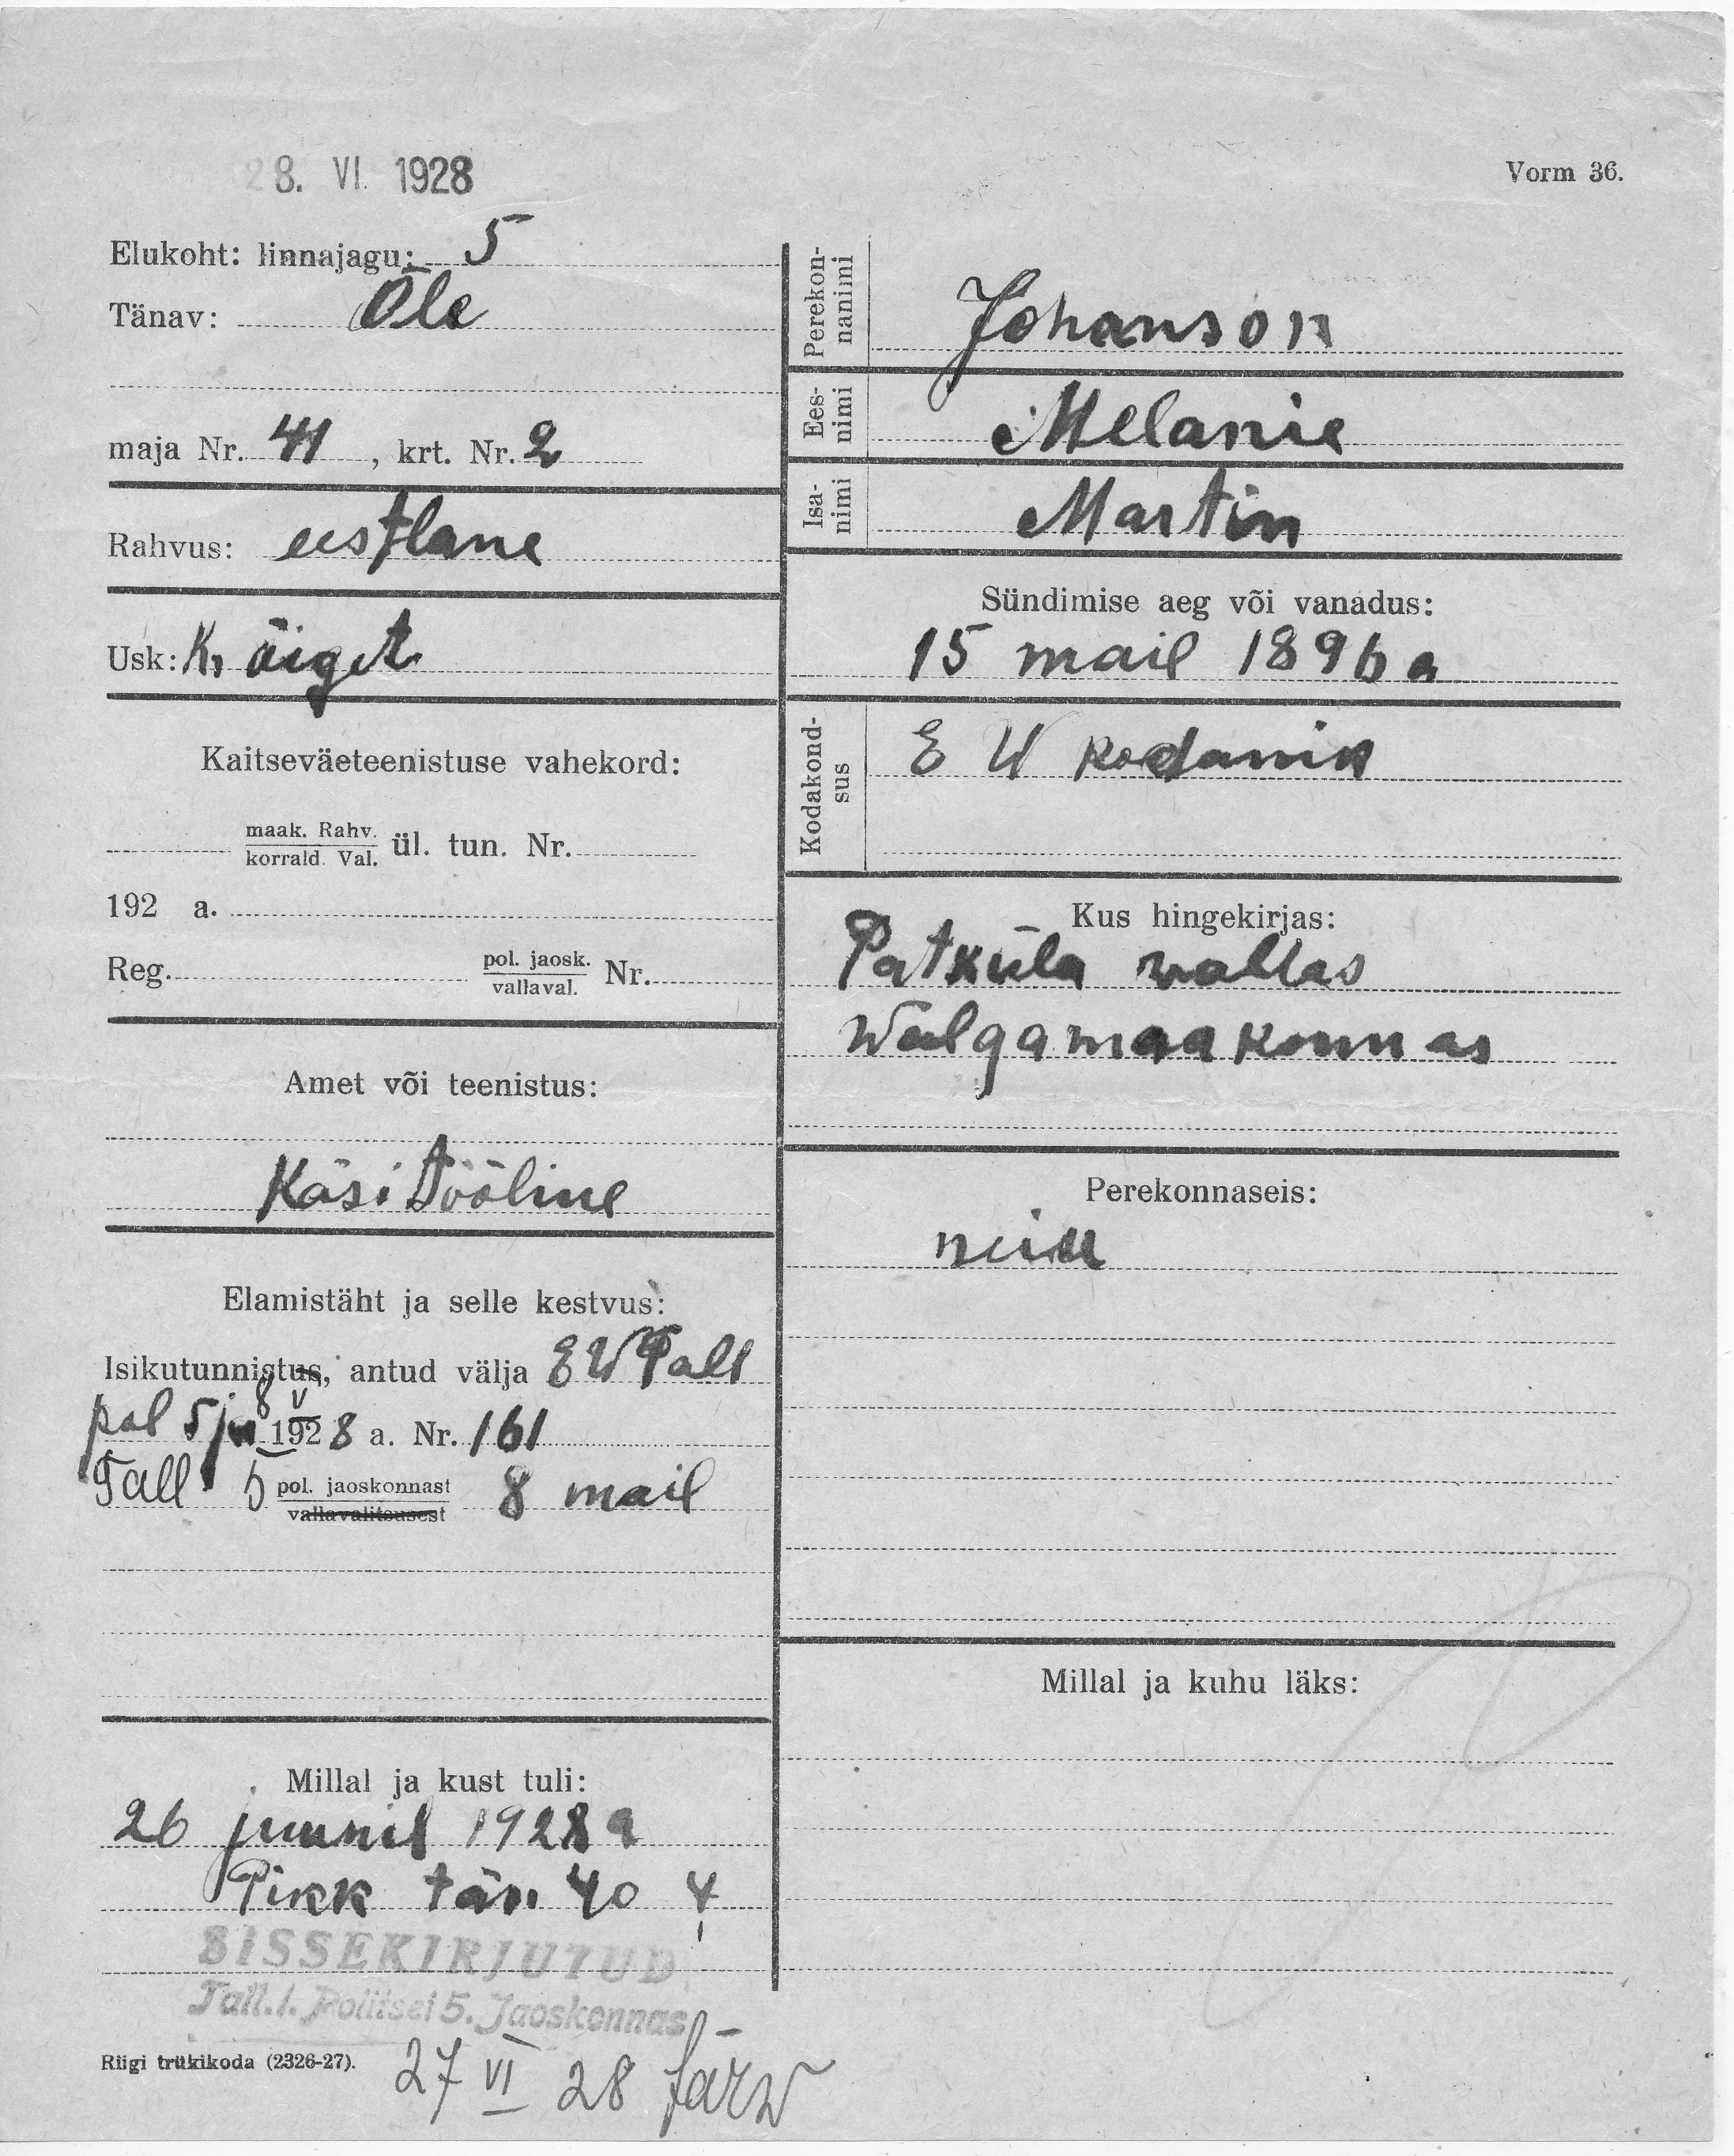 28. VI. 1928
Vorm 36.
Elukoht: linnajagu: 5
Tänav: Õle
maja Nr. 41, krt. Nr. 2
Rahvus: eestlane
Usk: Kr õiget
Kaitseväeteenistuse vahekord:
maak. Rahv.
korrald. Val. ül. tun. Nr.
192 a.
Reg. pol. jaosk. Nr.
vallaval.
Amet või teenistus:
Käsitööline
Elamistäht ja selle kestvus:
Isikutunnistus, antud välja E W Tall
8 V
pol 5 jn 1928 a. Nr. 161
Tall 5 pol. jaoskonnast 8 mail
vallavalitsusest
Millal ja kust tuli:
26 juunil 1928 a
Pikk tän. 40 4
SISSEKIRJUTUD
Tall.l. Politsei 5. Jaoskonnas
Riigi trükikoda (2326-27).
27 VI 28 Järw
Perekon-
nanimi
Johanson
Ees-
nimi
Melanie
Isa-
nimi
Martin
Sündimise aeg või vanadus:
15 mail 1896 a
Kodakond-
sus
E W kodanik
Kus hingekirjas:
Patküla wallas
Walgamaakonnas
Perekonnaseis:
neiu
Millal ja kuhu läks: